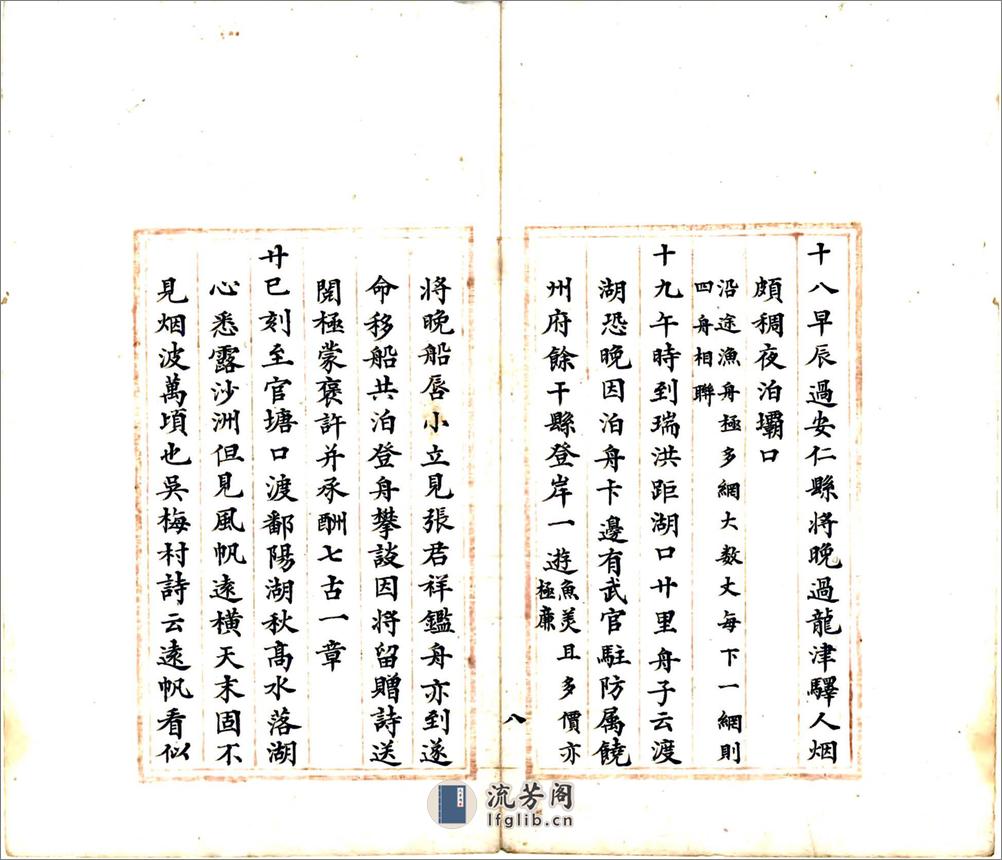 十八早辰過安仁縣將晚過龍津驛人烟
頗稠夜泊壩口
沿途漁舟極多網大数丈每下一網則
四舟相聯
十九午時到瑞洪距湖口廿里舟子云渡
湖恐晚因泊舟卡邊有武官駐防属饒
州府餘干縣登岸一遊魚美且多價亦
極廉
八
將晚船唇小立見張君祥鑑舟亦到遂
命移船共泊登舟攀談因將留贈詩送
閱極蒙褒許并承酬七古一章
廿巳刻至官塘口渡鄱陽湖秋高水落湖
心悉露沙洲但見風帆遠橫天末固不
見烟波萬頃也吳梅村詩云遠帆看似
流芳阁
lfglib.cn